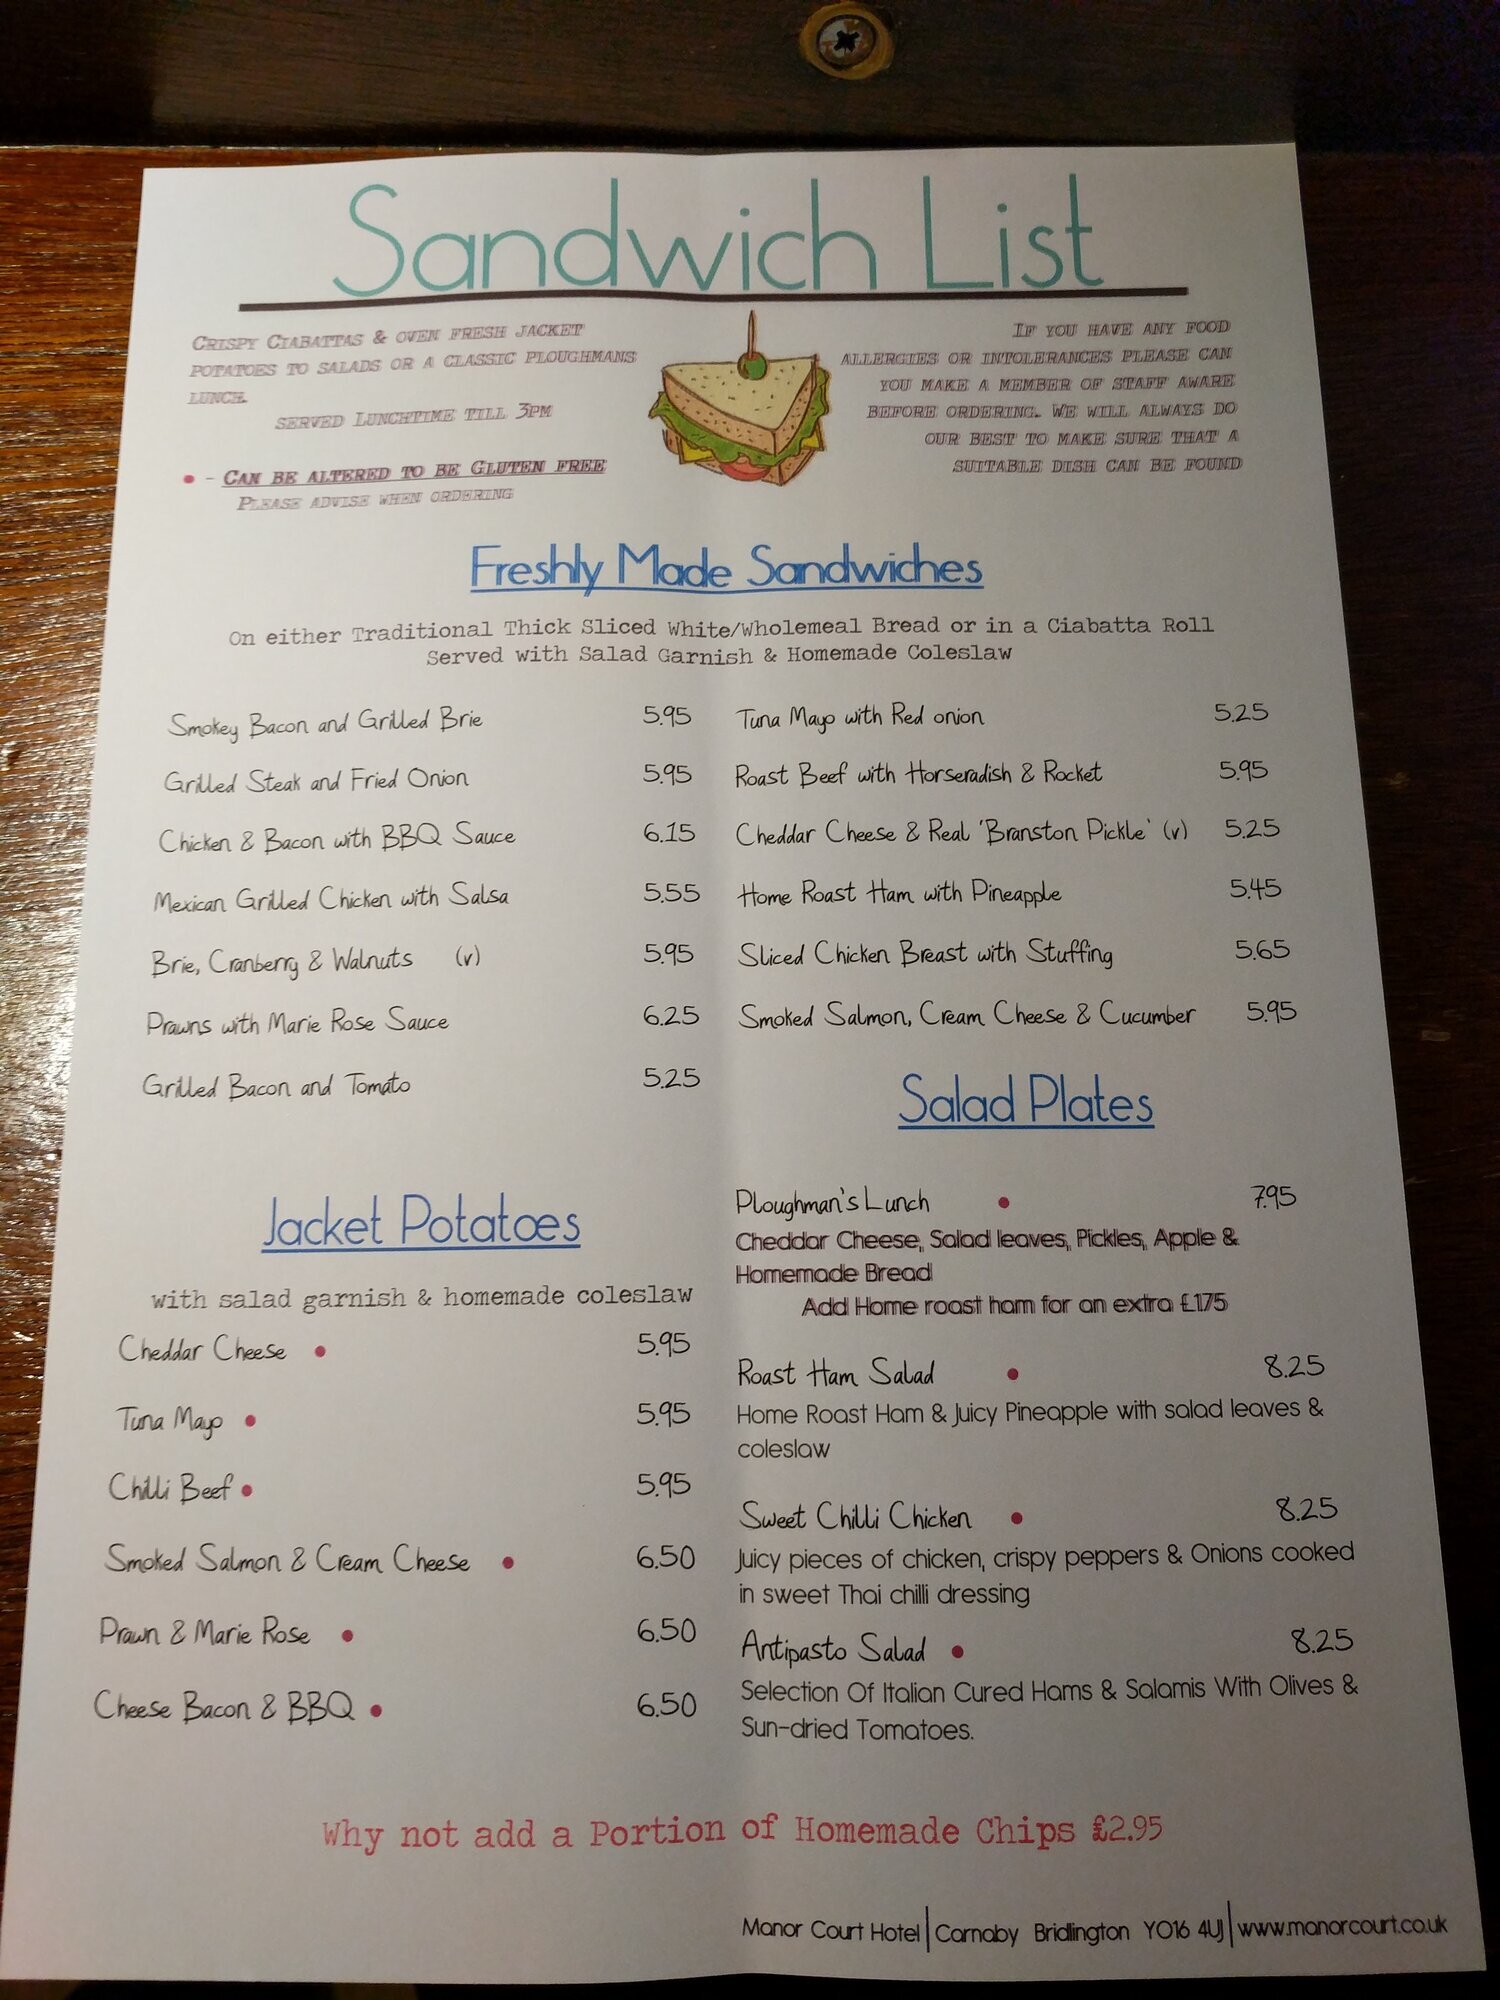 Sandwich List
Crispy Ciabattas & oven fresh jacket
potatoes to salads or a classic ploughmans
lunch.
served Lunchtime till 3pm
• - Can be altered to be Gluten free
Please advise when ordering
If you have any food
allergies or intolerances please can
you make a member of staff aware
before ordering. We will always do
our best to make sure that a
suitable dish can be found
Freshly Made Sandwiches
On either Traditional Thick Sliced White/Wholemeal Bread or in a Ciabatta Roll
Served with Salad Garnish & Homemade Coleslaw
Smokey Bacon and Grilled Brie 5.95
Grilled Steak and Fried Onion 5.95
Chicken & Bacon with BBQ Sauce 6.15
Mexican Grilled Chicken with Salsa 5.55
Brie, Cranberry & Walnuts (v) 5.95
Prawns with Marie Rose Sauce 6.25
Grilled Bacon and Tomato 5.25
Tuna Mayo with Red onion 5.25
Roast Beef with Horseradish & Rocket 5.95
Cheddar Cheese & Real 'Branston Pickle' (v) 5.25
Home Roast Ham with Pineapple 5.45
Sliced Chicken Breast with Stuffing 5.65
Smoked Salmon, Cream Cheese & Cucumber 5.95
Jacket Potatoes
with salad garnish & homemade coleslaw
Cheddar Cheese • 5.95
Tuna Mayo • 5.95
Chilli Beef • 5.95
Smoked Salmon & Cream Cheese • 6.50
Prawn & Marie Rose • 6.50
Cheese Bacon & BBQ • 6.50
Salad Plates
Ploughman's Lunch • 7.95
Cheddar Cheese, Salad leaves, Pickles, Apple &
Homemade Bread
Add Home roast ham for an extra £1.75
Roast Ham Salad • 8.25
Home Roast Ham & Juicy Pineapple with salad leaves &
coleslaw
Sweet Chilli Chicken • 8.25
Juicy pieces of chicken, crispy peppers & Onions cooked
in sweet Thai chilli dressing
Antipasto Salad • 8.25
Selection Of Italian Cured Hams & Salamis With Olives &
Sun-dried Tomatoes.
Why not add a Portion of Homemade Chips £2.95
Manor Court Hotel | Carnaby Bridlington YO16 4UJ | www.manorcourt.co.uk